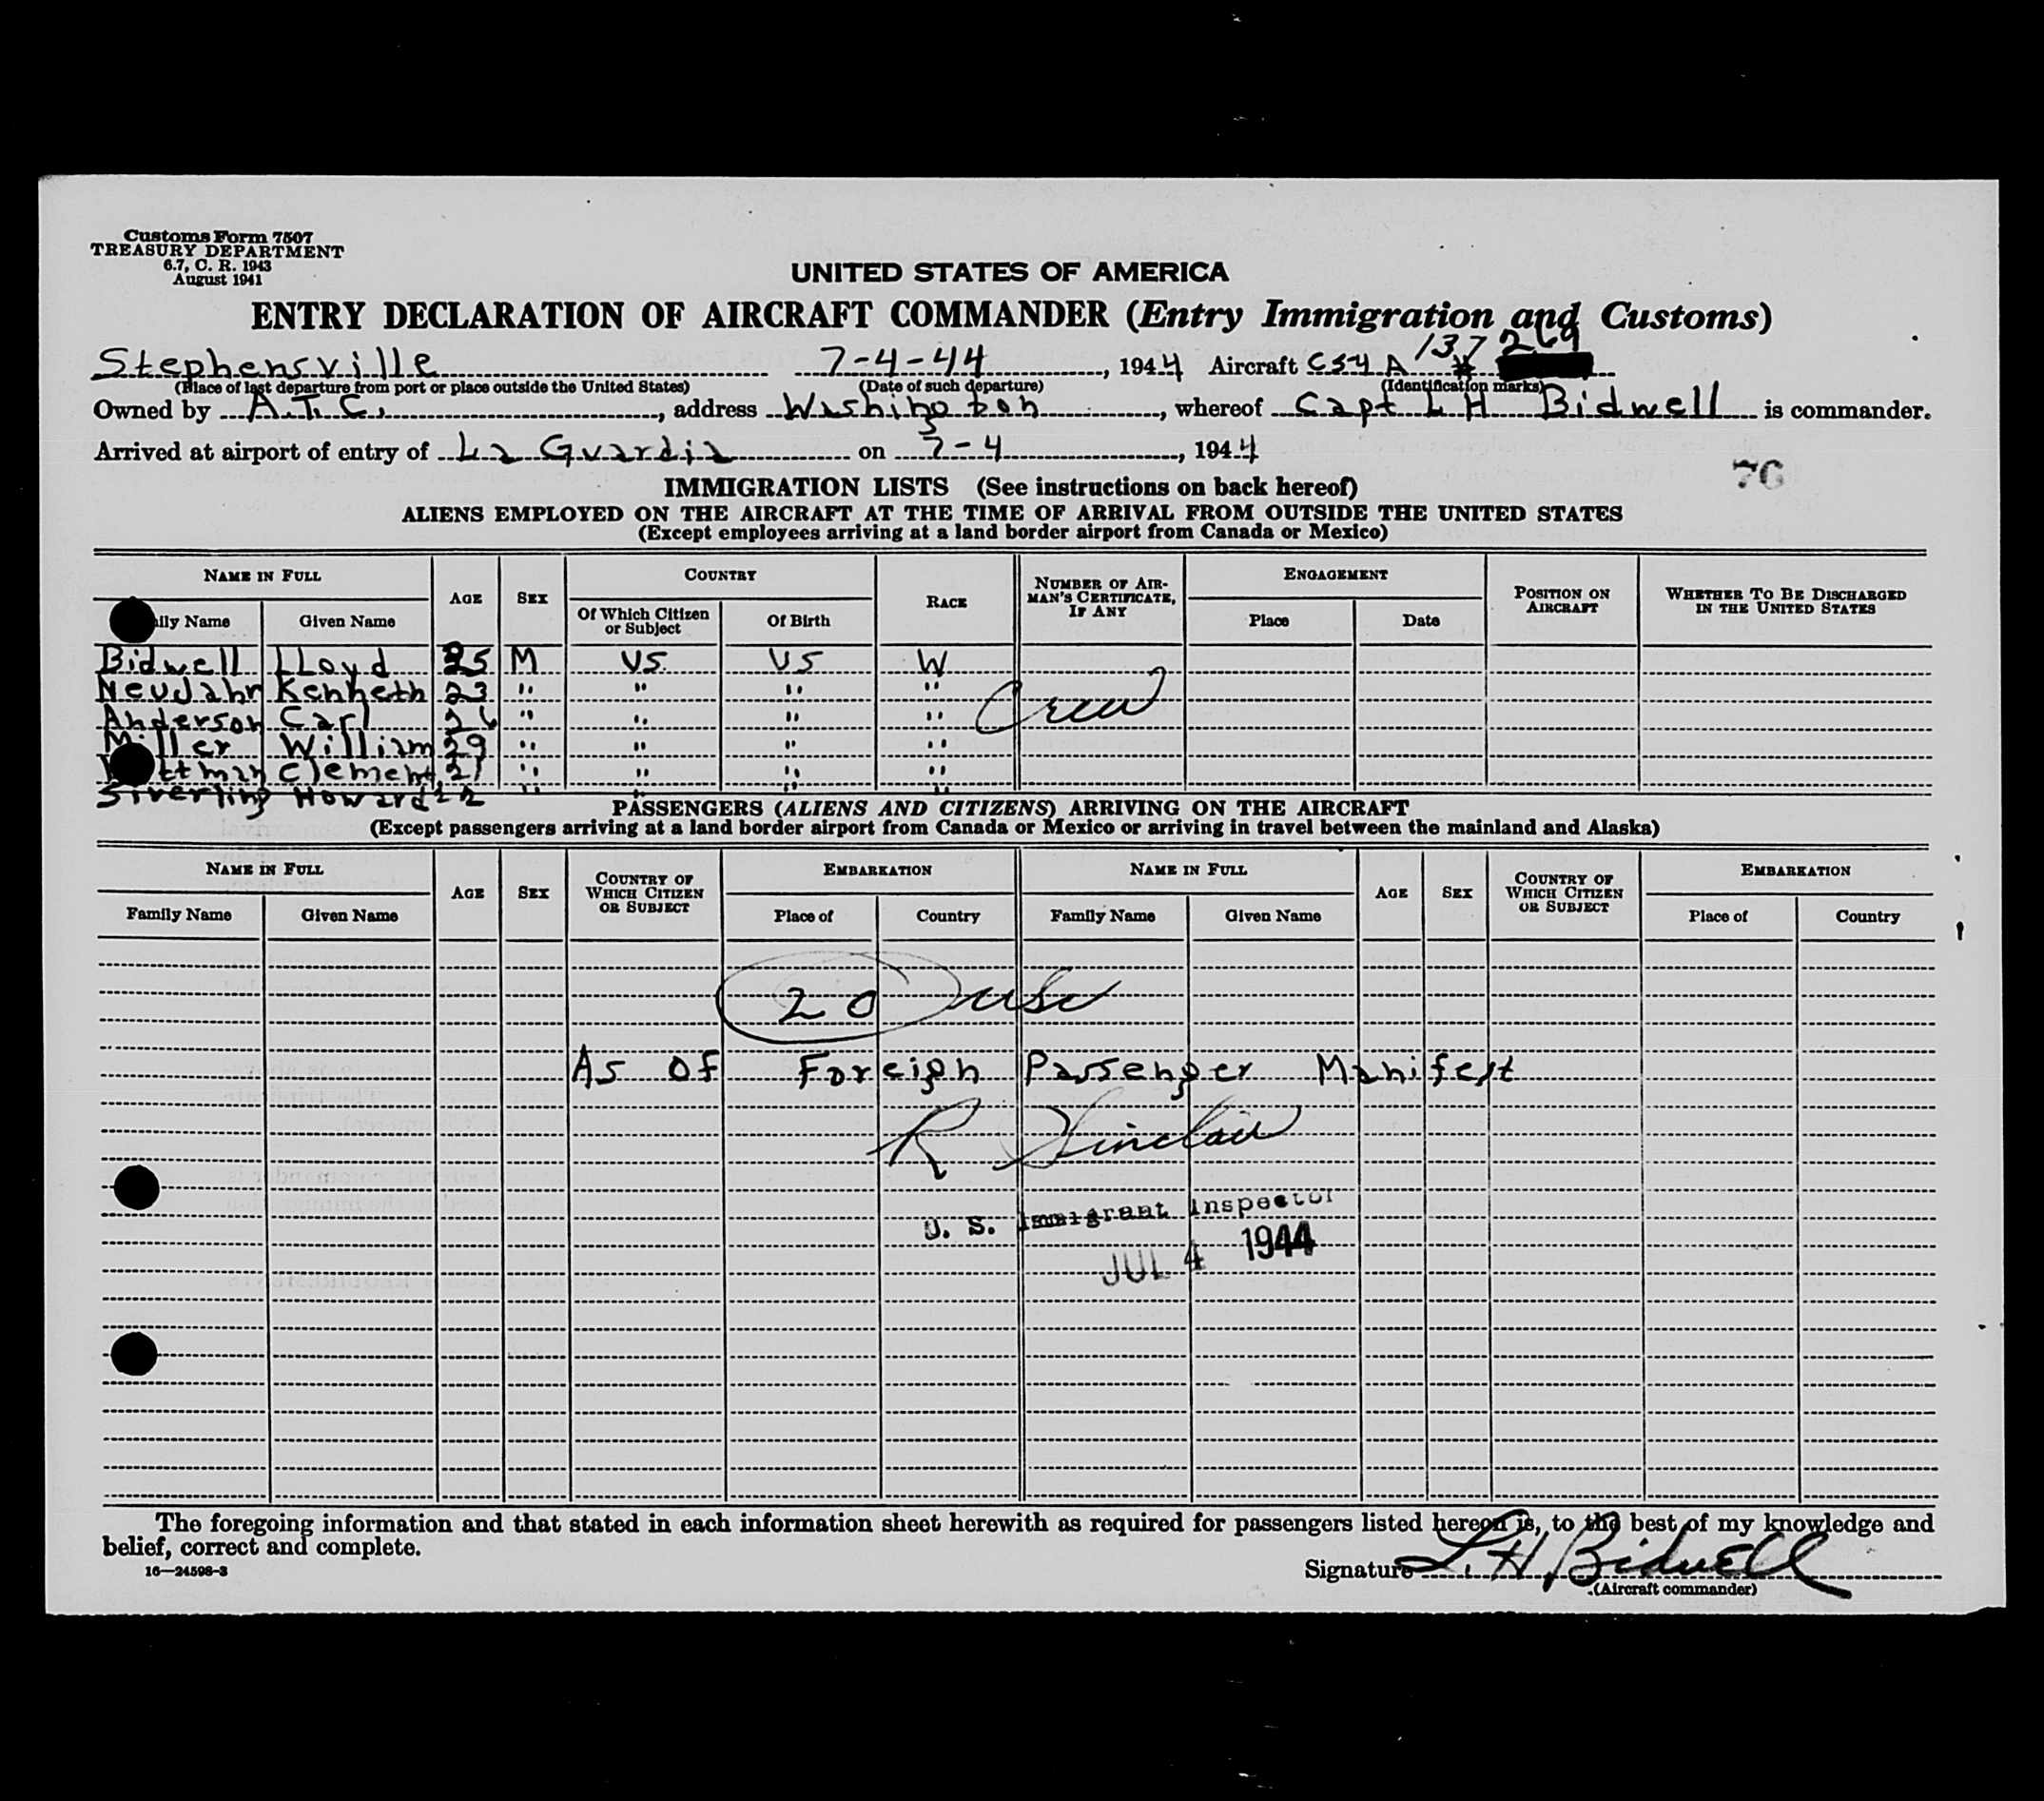 Customs Form 7507
TREASURY DEPARTMENT
6.7, C. R. 1943
August 1941
UNITED STATES OF AMERICA
ENTRY DECLARATION OF AIRCRAFT COMMANDER (Entry Immigration and Customs)
137 269
Stephensville 7-4-44, 1944 Aircraft C54 A #
(Place of last departure from port or place outside the United States) (Date of such departure) (Identification marks)
Owned by A.T.C., address Washington, whereof Capt L H Bidwell is commander.
Arrived at airport of entry of La Guardia on 7-4, 1944
76
IMMIGRATION LISTS (See instructions on back hereof)
ALIENS EMPLOYED ON THE AIRCRAFT AT THE TIME OF ARRIVAL FROM OUTSIDE THE UNITED STATES
(Except employees arriving at a land border airport from Canada or Mexico)
NAME IN FULL AGE SEX COUNTRY RACE NUMBER OF AIRMAN'S CERTIFICATE, IF ANY ENGAGEMENT POSITION ON AIRCRAFT WHETHER TO BE DISCHARGED IN THE UNITED STATES
ily Name Given Name Of Which Citizen or Subject Of Birth Place Date
Bidwell LLoyd 25 M US US W
NeuJahr Kenneth 23 " " " "
Anderson Carl 26 " " " " Crew
Miller William 29 " " " "
ttman Clement 21 " " " "
Siverling Howard 22 " " " "
PASSENGERS (ALIENS AND CITIZENS) ARRIVING ON THE AIRCRAFT
(Except passengers arriving at a land border airport from Canada or Mexico or arriving in travel between the mainland and Alaska)
NAME IN FULL AGE SEX COUNTRY OF WHICH CITIZEN OR SUBJECT EMBARKATION NAME IN FULL AGE SEX COUNTRY OF WHICH CITIZEN OR SUBJECT EMBARKATION
Family Name Given Name Place of Country Family Name Given Name Place of Country
20 usc
As Of Foreign Passenger Manifest
R Sinclair
U. S. Immigrant Inspector
JUL 4 1944
The foregoing information and that stated in each information sheet herewith as required for passengers listed hereon is, to the best of my knowledge and
belief, correct and complete.
16—24598-3
Signature L. H. Bidwell
(Aircraft commander)